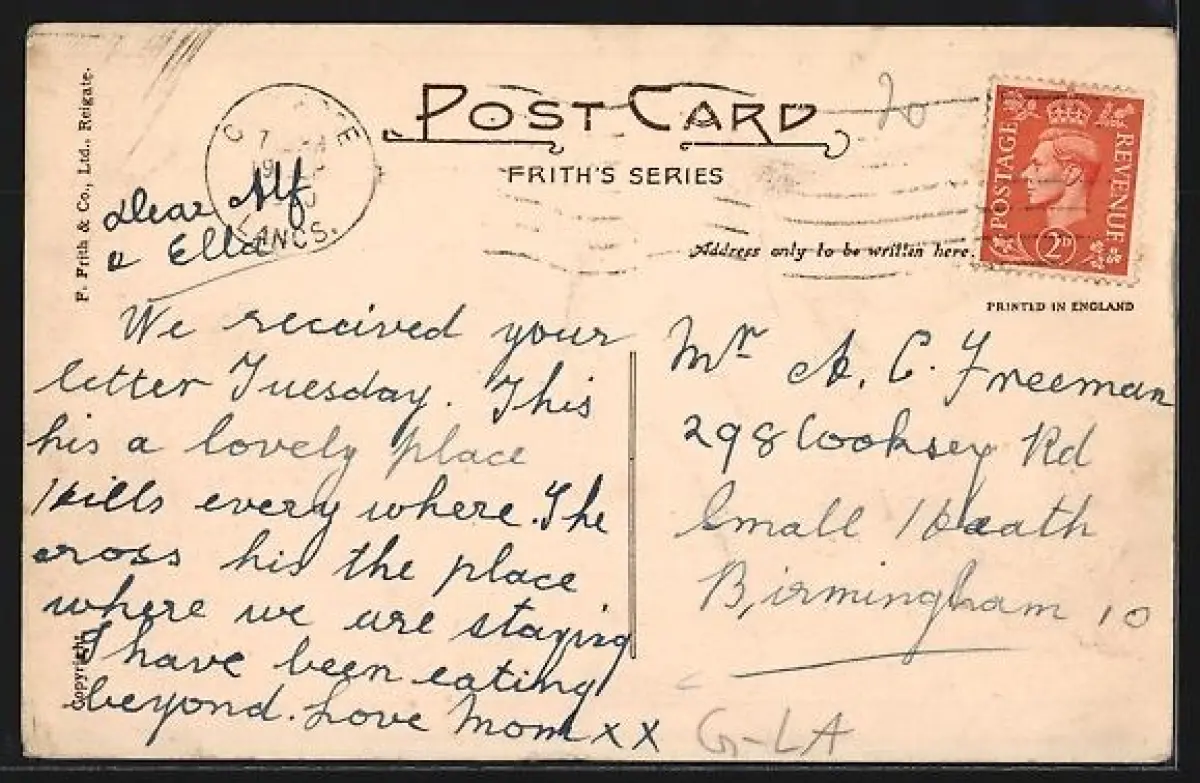 POST CARD
FRITH'S SERIES
Address only to be written here.
PRINTED IN ENGLAND
POSTAGE
REVENUE
2D
LANCS.
F. Frith & Co., Ltd., Reigate.
Copyright
Dear Alf
& Ella
We received your
letter Tuesday. This
his a lovely place
Hills every where. The
cross his the place
where we are staying
I have been eating
beyond. Love Mom x x
Mr A. C. Freeman
298 Cooksey Rd
Small Heath
Birmingham 10
G-LA